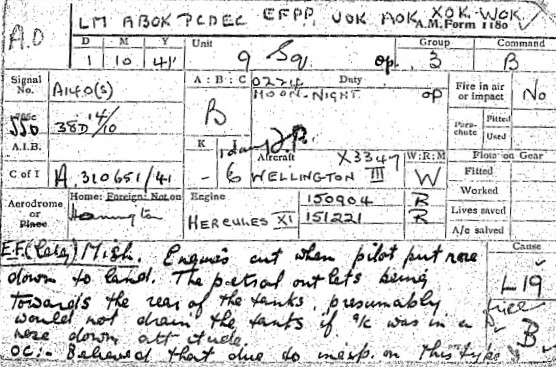 LM ABOK PCDEC EFPP, UOK AOK, XOK WOK
A.D
A.M. Form 1180
D M Y Unit Group Command
1 10 41 9 Sq op. 3 B
Signal No. A140(S)
A : B : C 0224 Duty
B MOON-NIGHT op
Fire in air or impact No
Para-chute Fitted
Used
38D 14/10
A.I.B.
K
Aircraft X3347 W:R:M
Floats on Gear
C of I A. 310651/41
WELLINGTON III W
Fitted
Worked
Aerodrome or Place Home: Foreign: Not on
Honington
Engine 150904 R
HERCULES XI 151221 R
Lives saved
A/c salved
E.F. Mish. Engines cut when pilot put nose
down to land. The petrol outlets being
towards the rear of the tanks, presumably
would not drain the tanks if a/c was in a
nose down attitude.
OC:- Believed that due to inexp. on this type
Cause
L 19
B